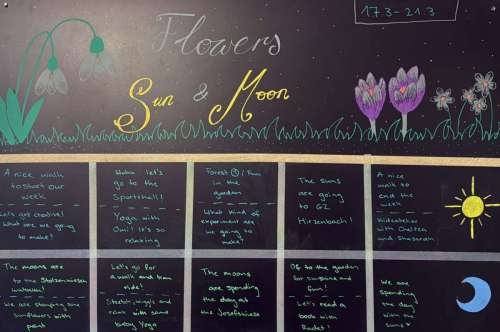 17.3-21.3
Flowers
Sun & Moon
A nice
walk
to start our
week
Let's get creative!
What are we going
to make?
let's
go to the
Sporthall!
Yoga with
Omi! It's so
relaxing
Forest / Fun
in the
garden
What kind of
experiment are
we going to
make?
The suns
are going
to GZ
Hirzenbach!
A nice
walk to
end the
week
Kidsatelier
with Chelsea
and
The moons are
to the
We are stamping
sunflowers with
paint
Let's go for
a walk and tram
ride!
Stretch, wiggle and
with some
baby Yoga
The moons
are spending
the day at
the Josefswiese
Of to the garden
for sunshine and
fun!
Let's read a
book with
We are
spending
the day
with our
suns